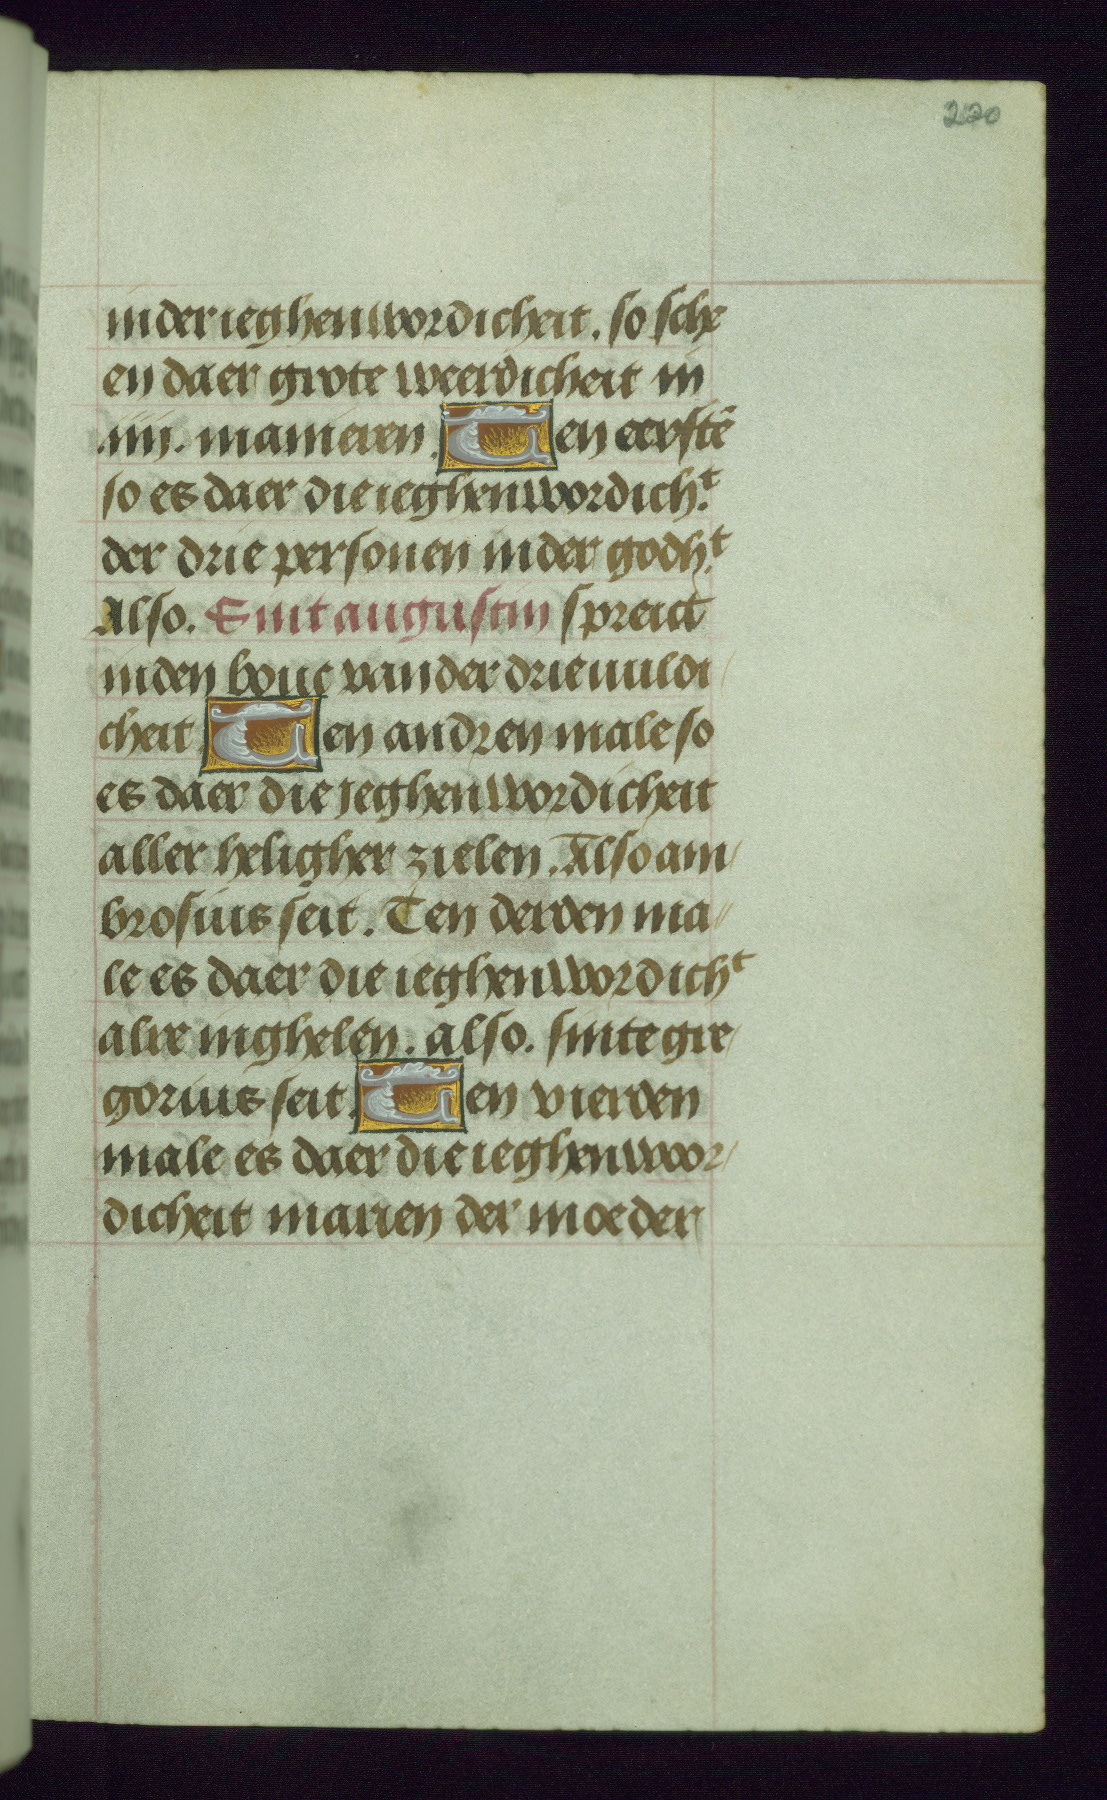 220
in der ieghenwordicheit. so sche
en daer grote weerdicheit in
.iiij. manieren. Ten eerstē
so es daer die ieghenwordich.t
der drie personen in der godh.t
Also. Sint augustin spreict
in den bouc van der drieuuldi
cheit Ten andren male so
es daer die jeghenwordicheit
aller heligher zielen. Also am/
brosius seit. Ten derden ma//
le es daer die ieghenwordicht
alre inghelen. also. sinte gre/
gorius seit. Ten vierden
male es daer die ieghenwoor/
dicheit marien der moeder